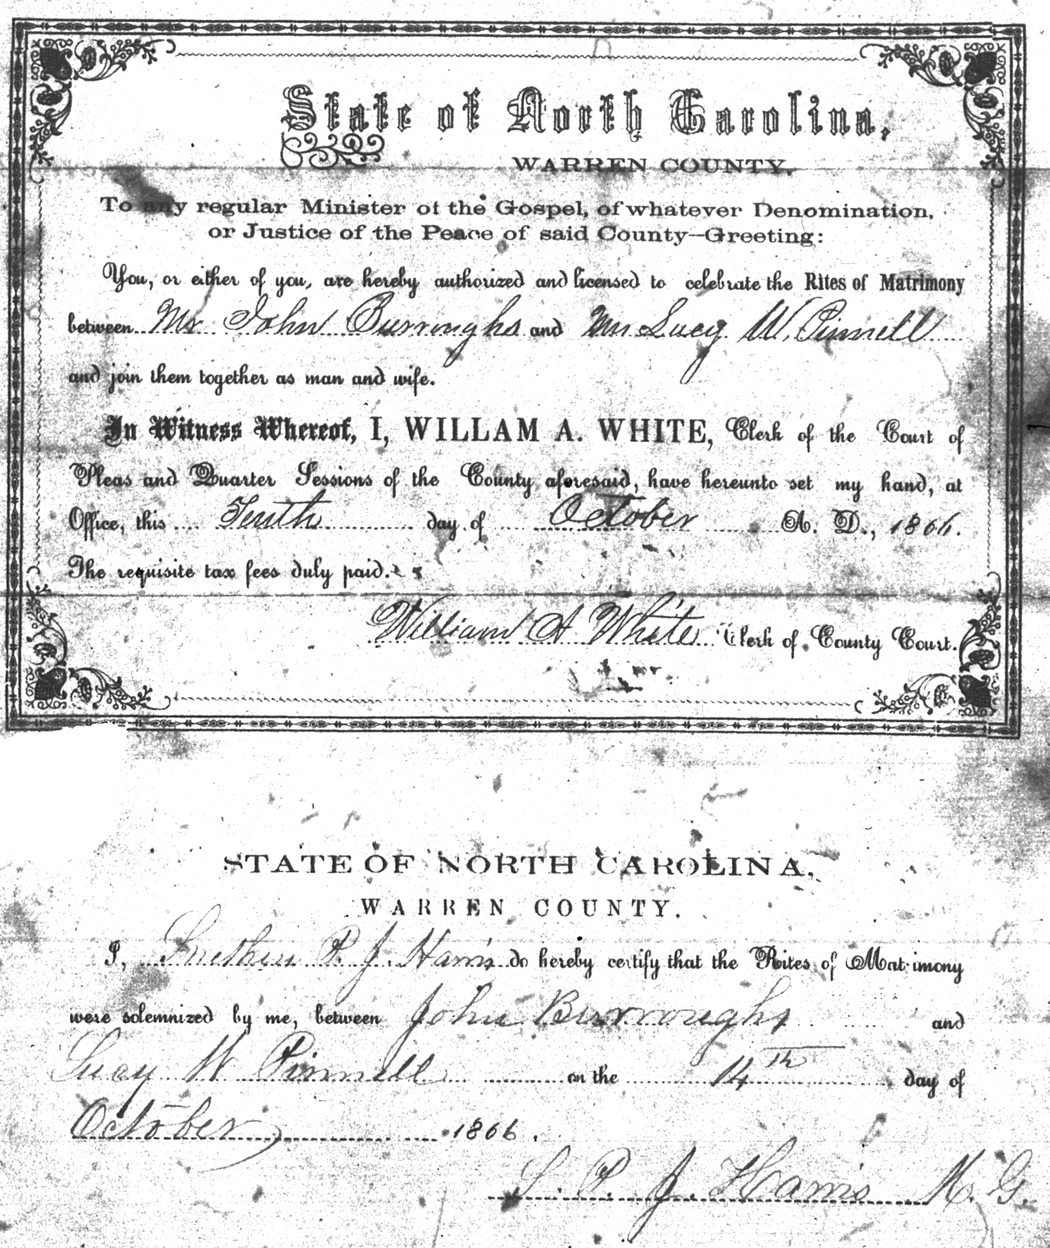 State of North Carolina,
WARREN COUNTY.
To any regular Minister of the Gospel, of whatever Denomination,
or Justice of the Peace of said County—Greeting:
You, or either of you, are hereby authorized and licensed to celebrate the Rites of Matrimony
between Mr John Burroughs and Lucy W. Pinnell
and join them together as man and wife.
In Witness Whereof, I, WILLAM A. WHITE, Clerk of the Court of
Pleas and Quarter Sessions of the County aforesaid, have hereunto set my hand, at
Office, this Tenth day of October A. D., 1866.
The requisite tax fees duly paid.
William A White Clerk of County Court.
STATE OF NORTH CAROLINA,
WARREN COUNTY.
I, P. J. Harris do hereby certify that the Rites of Matrimony
were solemnized by me, between John Burroughs and
Lucy W Pinnell on the 14th day of
October 1866.
P. J. Harris M. G.